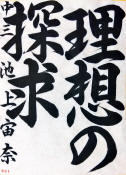 理想の
探求
中三 池上宙奈